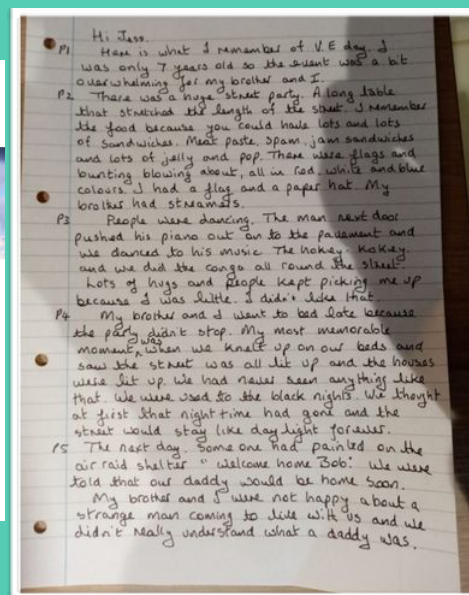 Hi Jess.
P1 Here is what I remember of V.E day. I
was only 7 years old so the event was a bit
overwhelming for my brother and I.
P2 There was a huge street party. A long table
that stretched the length of the street. I remember
the food because you could have lots and lots
of sandwiches. Meat paste, spam, jam sandwiches
and lots of jelly and pop. There were flags and
bunting blowing about, all in red, white and blue
colours. I had a flag and a paper hat. My
brother had streamers.
P3 People were dancing. The man next door
pushed his piano out on to the pavement and
we danced to his music. The hokey-kokey.
and we did the conga all round the street.
Lots of hugs and people kept picking me up
because I was little. I didn't like that.
P4 My brother and I went to bed late because
the party didn't stop. My most memorable
moment was when we knelt up on our beds and
saw the street was all lit up and the houses
were lit up. We had never seen anything like
that. We were used to the black nights. We thought
at first that night time had gone and the
street would stay like day light forever.
P5 The next day. Some one had painted on the
air raid shelter "welcome home Bob". We were
told that our daddy would be home soon.
My brother and I were not happy about a
strange man coming to live with us and we
didn't really understand what a daddy was.